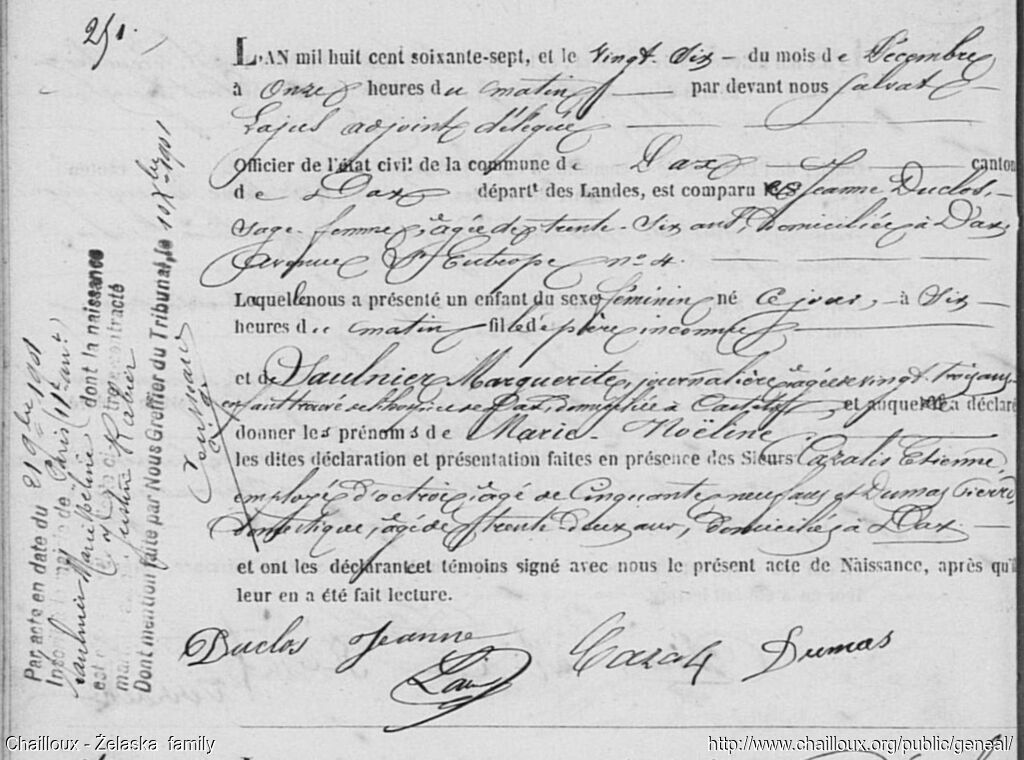 251.
L'AN mil huit cent soixante-sept, et le Vingt-Six du mois de Décembre
à Onze heures du matin par devant nous Salvat
Lajus adjoint délégué
Officier de l'état civil de la commune de Dax canton
de Dax départ! des Landes, est comparu Jeanne Duclos,
Sage-femme, âgée de trente-six ans, domiciliée à Dax,
avenue St Eutrope n° 4.
Laquelle nous a présenté un enfant du sexe féminin né ce jour, à Six
heures du matin fille de père inconnu
et de Saulnier Marguerite, journalière, âgée de vingt-trois ans,
enfant trouvé de l'hospice de Dax, domiciliée à et auquel a déclaré
donner les prénoms de Marie-Noëline
les dites déclaration et présentation faites en présence des Sieurs Cazalis Etienne,
employé d'octroi, âgé de Cinquante-neuf ans et Dumas Pierre
domestique, âgé de trente-deux ans, domiciliés à Dax.
et ont les déclarant et témoins signé avec nous le présent acte de Naissance, après qu'il
leur en a été fait lecture.
Duclos Jeanne Dumas
Par acte en date du 21 9bre 1901
de Paris
Saulnier Marie Noëline dont la naissance
est
Dont mention faite par Nous Greffier du Tribunal, le 10 Xbre 1901
Chailloux - Żelaska family
http://www.chailloux.org/public/geneal/